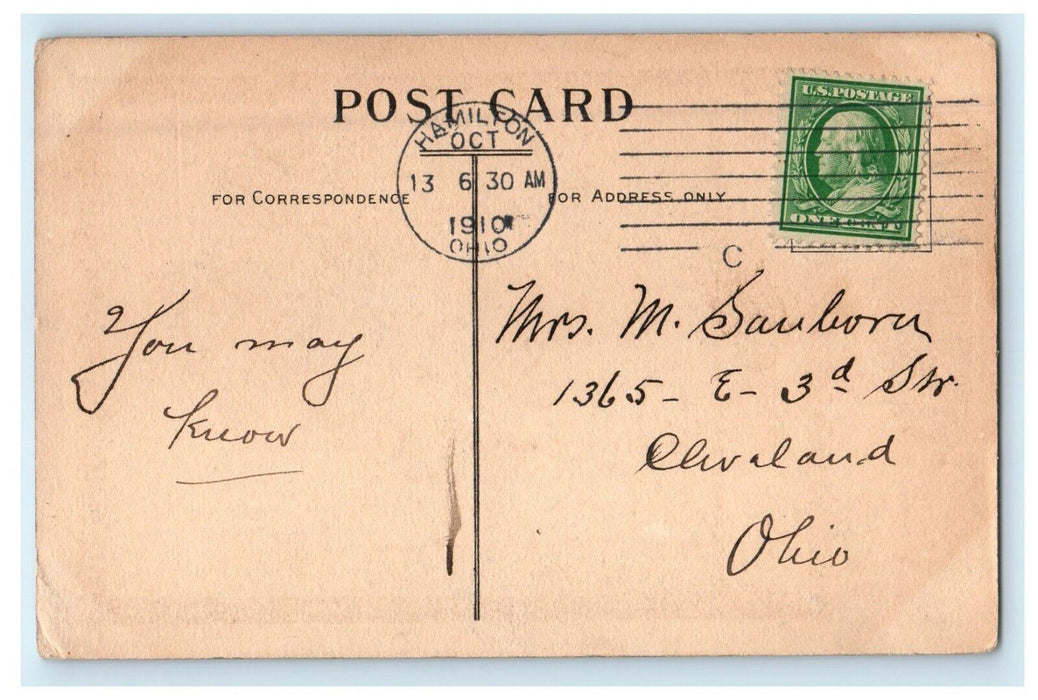 POST CARD
HAMILTON
OCT
13 6 30 AM
1910
OHIO
U.S. POSTAGE
ONE CENT
FOR CORRESPONDENCE
FOR ADDRESS ONLY
C
You may
know
Mrs. M. Sanborn
1365 - E - 3d Str.
Cleveland
Ohio